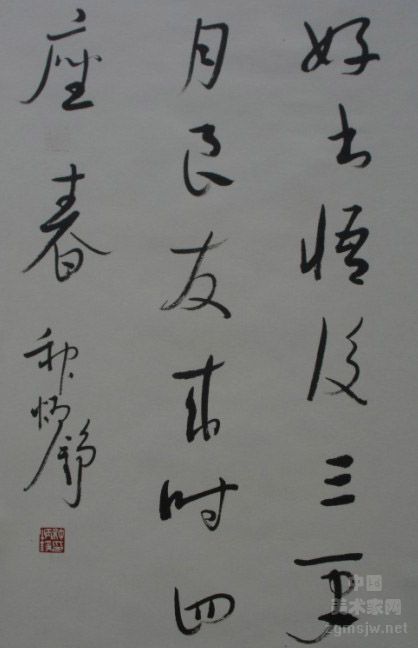 好书悟後三更
月良友来时四
座春
中国
美术家网
zgmsjw.net